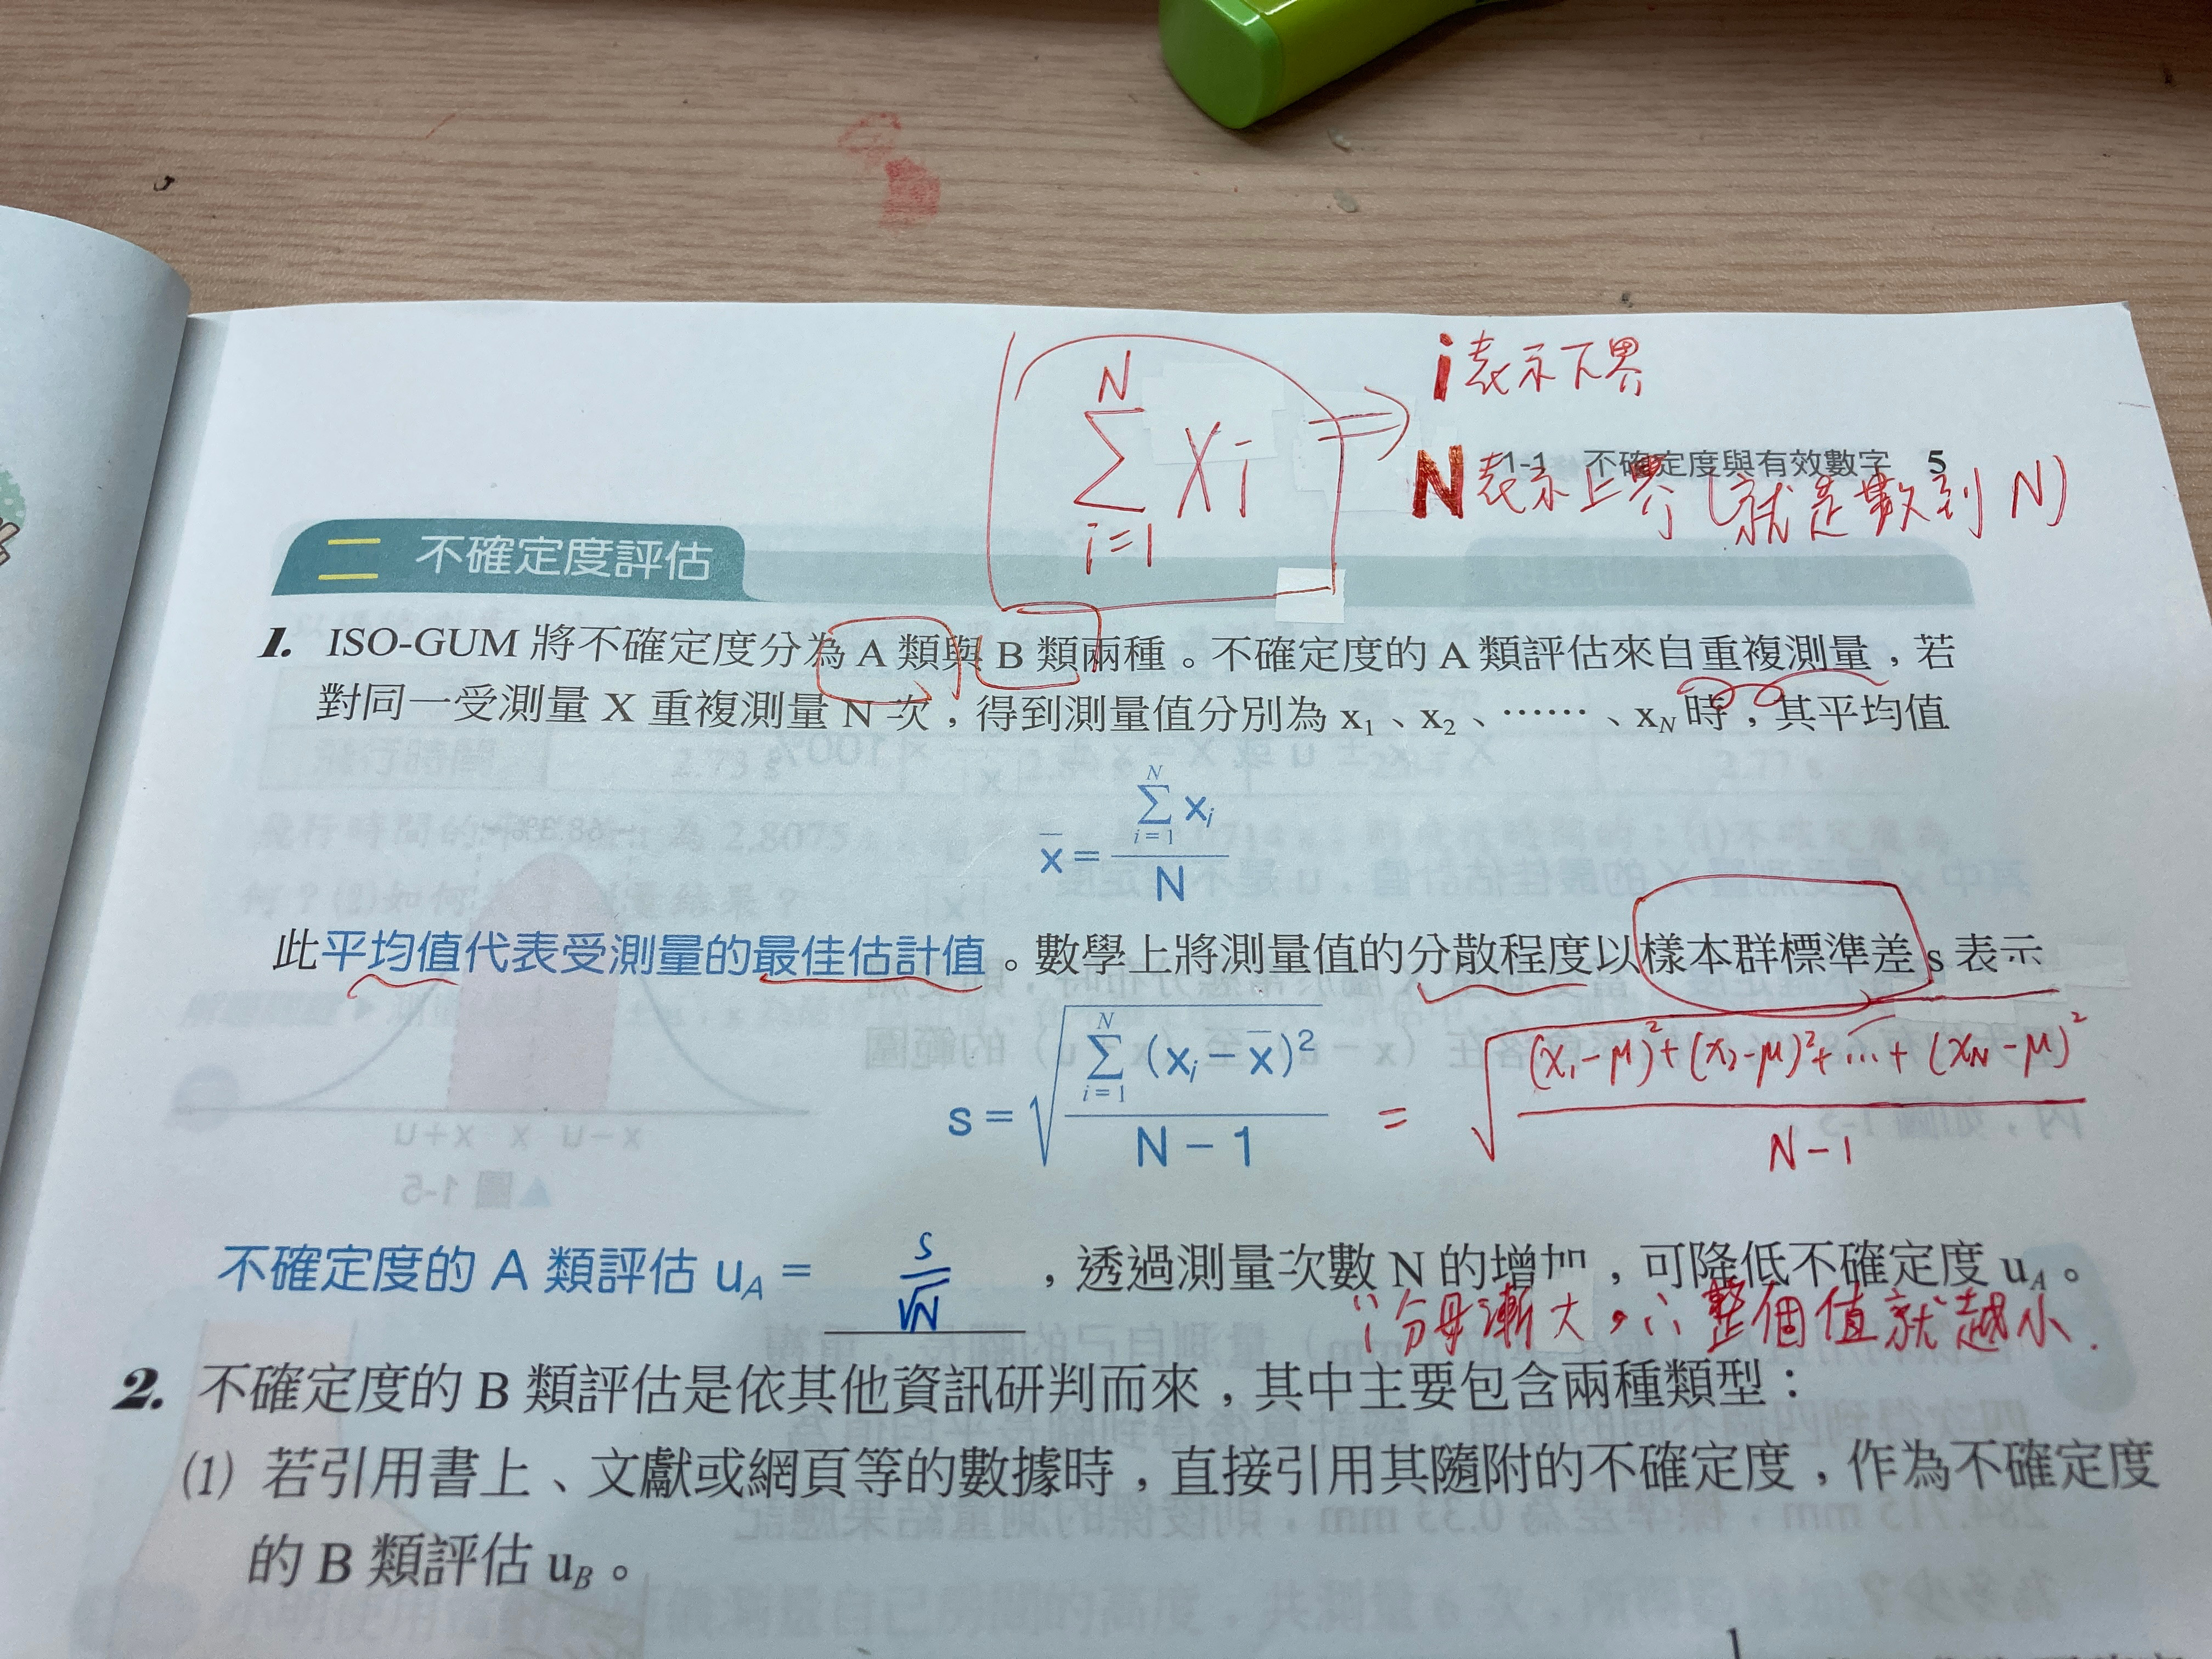 N
∑ xi
i=1
⇒ i 表示下界
N 表示上界(就是數到 N)
1-1 不確定度與有效數字 5
二 不確定度評估
1. ISO-GUM 將不確定度分為 A 類與 B 類兩種。不確定度的 A 類評估來自重複測量，若
對同一受測量 X 重複測量 N 次，得到測量值分別為 x₁、x₂、……、x_N 時，其平均值
N
∑ xᵢ
i=1
x̄ =
N
此平均值代表受測量的最佳估計值。數學上將測量值的分散程度以樣本群標準差 s 表示
s = √(∑_{i=1}^{N} (xᵢ − x̄)² / (N − 1)) = √(((x₁-μ)²+(x₂-μ)²+…+(x_N-μ)²) / (N-1))
不確定度的 A 類評估 u_A = s/√N ，透過測量次數 N 的增加，可降低不確定度 u_A。
∵分母漸大，∴整個值就越小.
2. 不確定度的 B 類評估是依其他資訊研判而來，其中主要包含兩種類型：
(1) 若引用書上、文獻或網頁等的數據時，直接引用其隨附的不確定度，作為不確定度
的 B 類評估 u_B。